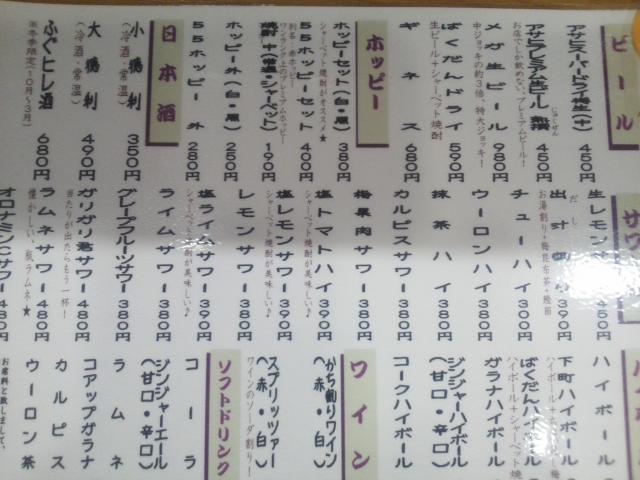 ビール
アサヒスーパードライ樽生(中) 450円
アサヒプレミアム生ビール 熟撰 450円
じゅくせん
お店でしか飲めない、プレミアムビール!
メガ生ビール 980円
中ジョッキの約3倍、特大ジョッキ!
ばくだんドライ 590円
生ビール+シャーベット焼酎
ギネス 680円
ホッピー
ホッピーセット(白・黒) 380円
シャーベット焼酎がオススメ★
55ホッピーセット 400円
ワンランク上のプレミアムホッピー
焼酎 中(常温・シャーベット) 190円
ホッピー外(白・黒) 250円
55ホッピー 外 280円
日本酒
小徳利 350円
(冷酒・常温)
大徳利 490円
(冷酒・常温)
ふぐヒレ酒 680円
※冬季限定(10月~3月)
サワ
生レモン 450円
390円
お湯割り・梅昆布茶・鰹節
チューハイ 320円
ウーロンハイ 380円
抹茶ハイ 380円
カルピスサワー 380円
梅果肉サワー 380円
塩トマトハイ 390円
シャーベット焼酎が美味しい♪
塩レモンサワー 390円
シャーベット焼酎が美味しい♪
レモンサワー 380円
塩ライムサワー 390円
シャーベット焼酎が美味しい♪
ライムサワー 380円
グレープフルーツサワー 380円
ガリガリ君サワー 480円
当たりが出たらもう一杯!
ラムネサワー 480円
懐かしい、瓶ラムネ★
オロナミンCサワー 480円
ハイボール
下町ハイボール
ばくだんハイボール
ハイボール+シャーベット焼酎
ガラナハイボール
ジンジャーハイボール
(甘口・辛口)
コークハイボール
ワイン
かち割りワイン
(赤・白)
スプリッツァー
(赤・白)
ワインのソーダ割り!
ソフトドリンク
コーラ
ジンジャーエール
(甘口・辛口)
ラムネ
コアップガラナ
カルピス
ウーロン茶
お席料と致しまして、